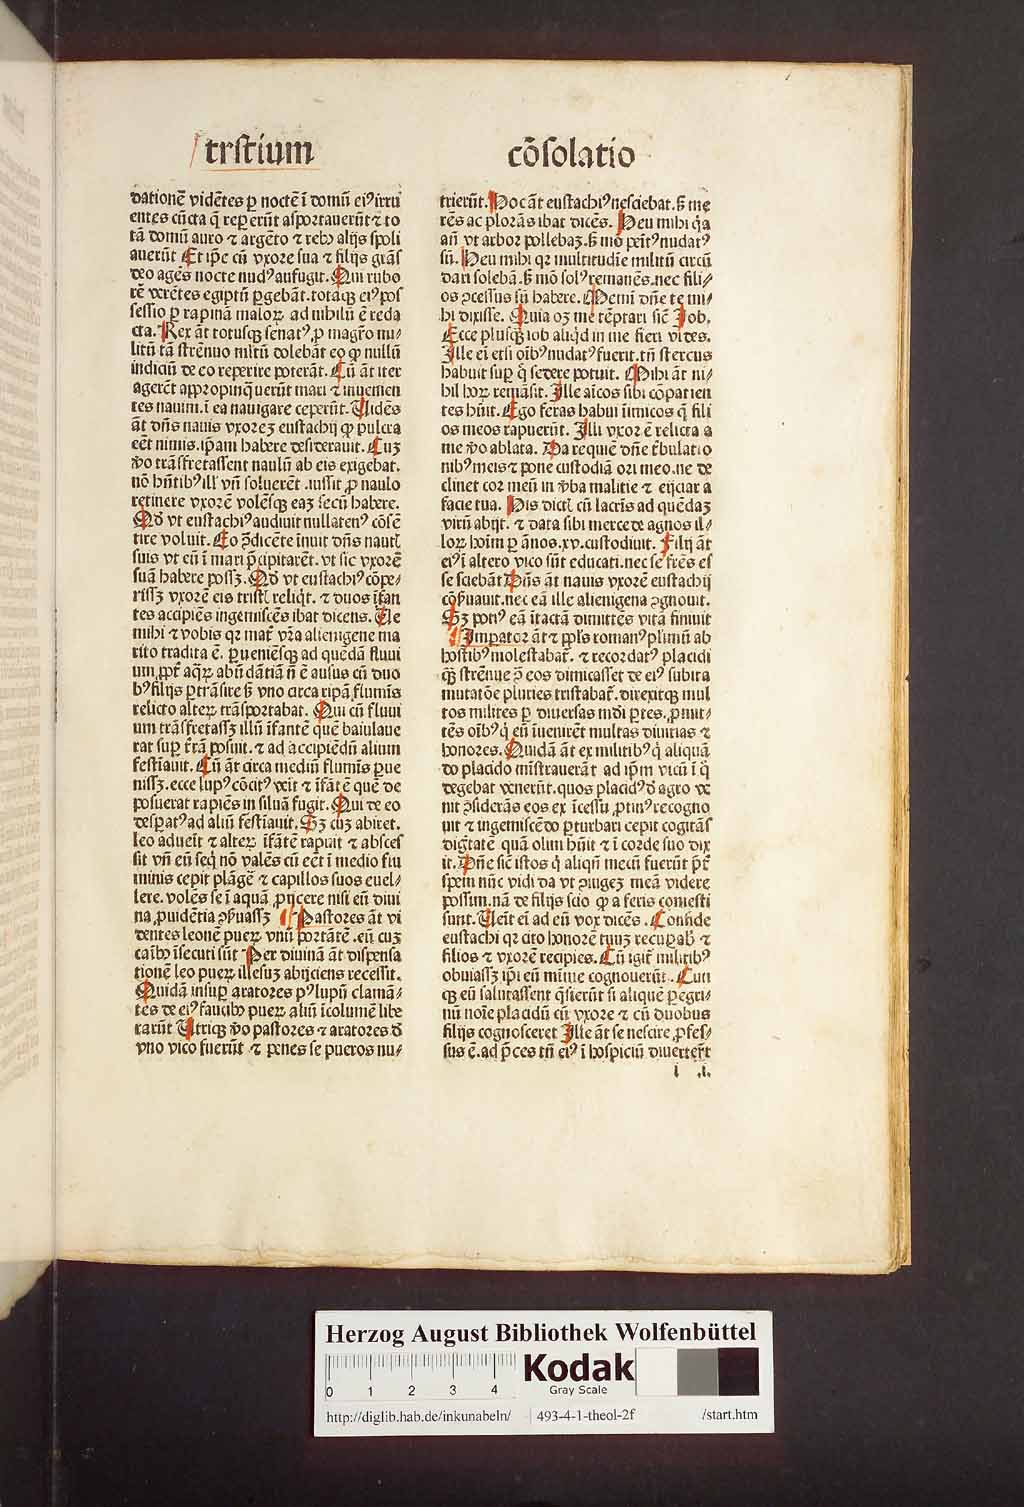 trſtium
cōſolatio
dationē vidētes ꝑ noctē ī domū eiꝰ irru
entes cūcta q̄ repererūt aſportauerūt ⁊ to
tā domū auro ⁊ argēto ⁊ rebꝫ alijs ſpoli
auerūt Et ip̄e cū vxore ſua ⁊ filijs grās
deo agēs nocte nudꝰ aufugit. Qui rubo
rē verētes egiptū ꝑgebāt. totaqꝫ eiꝰ poſ
ſeſſio ꝑ rapinā maloꝝ ad nihilū ē reda
cta. Rex āt totuſqꝫ ſenatꝰ ꝓ magr̄o mi⸗
litū tā ſtrēnuo mltū dolebāt eo ꝙ nullū
indiciū de eo reperire poterāt. Cū āt iter
agerēt appropinq̄uerūt mari ⁊ inuenien
tes nauim. ī ea nauigare ceperūt. Uidēs
āt dn̄s nauis vxorez euſtachij ꝙ pulcra
eēt nimis. ip̄am habere deſiderauit. Cuz
ꝟo trāſfretaſſent naulū ab eis exigebat.
nō hn̄tibꝰ ill' vn̄ ſoluerēt .iuſſit ꝓ naulo
retinere vxorē volēſqꝫ eaz ſecū habere.
Qd̄ vt euſtachiꝰ audiuit nullatenꝰ cōſē
tire voluit. Eo ꝯdicēte inuit dn̄s nautꝭ
ſuis vt eū ī mari p̄cipitarēt. vt ſic vxorē
ſuā habere poſſꝫ. Qd̄ vt euſtachiꝰ cōpe⸗
riſſꝫ vxorē eis triſtꝭ reliq̇t. ⁊ duos īfan
tes accipiēs ingemiſcēs ibat dicens. Ue
mihi ⁊ vobis qꝛ mat̄ vr̄a alienigene ma
rito tradita ē. ꝑueniēſqꝫ ad quēdā fluui
um ꝓpt̄ aq̄ꝝ abūdātiā nō ē auſus cū duo
bꝰ filijs ꝑtrāſire ſꝫ vno circa ripā flumīs
relicto alteꝝ trāſportabat. Qui cū fluui
um trāſfretaſſꝫ illū īfantē quē baiulaue
rat ſuꝑ t̄rā poſuit. ⁊ ad accipiēdū alium
feſtiauit. Cū āt circa mediū flumīs ꝑue
niſſꝫ. ecce lupꝰ cōcitꝰ veīt ⁊ īfātē quē de
poſuerat rapiēs in ſiluā fugit. Qui de eo
deſꝑatꝰ ad aliū feſtīauit. Sꝫ cuz abiret.
leo adueīt ⁊ alteꝝ īfātē rapuit ⁊ abſceſ
ſit vn̄ eū ſeq̇ nō valēs cū eēt ī medio flu
minis cepit plāgē ⁊ capillos ſuos euel⸗
lere. volēs ſe ī aquā ꝓijcere niſi eū diui
na ꝓuidētia ꝯẜuaſſꝫ Paſtores āt vi
dentes leonē pueꝝ vnū portātē .eū cuz
caībꝫ īſecuti ſūt Per diuinā āt diſpenſa
tionē leo pueꝝ illeſuꝫ abijciens receſſit.
Quidā inſuꝑ aratores pꝰ lupū clamā⸗
tes de eiꝰ faucibꝫ pueꝝ aliū īcolumē libe
rarūt Utriqꝫ ꝟo paſtores ⁊ aratores d̄
vno vico fuerūt ⁊ penes ſe pueros nu⸗
trierūt. Hoc āt euſtachiꝰ neſciebat. ſꝫ me
rēs ac plorās ibat dicēs. Heu mihi q̇a
an̄ vt arbor pollebaꝫ. ſꝫ mō penitꝰ nudatꝰ
ſū. Heu mihi qꝛ multitudīe militū circū
dari ſolebā. ſꝫ mō ſolꝰ remanēs. nec fili⸗
os ꝯceſſus ſū habere. Memī dn̄e te mi⸗
hi dixiſſe. Quia oꝫ me tēptari ſic̄ Job.
Ecce pluſqꝫ iob aliq̇d in me fieri vides.
Ille eī etſi oībꝰ nudatꝰ fuerit. tn̄ ſtercus
habuit ſuꝑ q̄ ſedere potuit. Mihi āt ni⸗
hil hoꝝ remāſit. Ille aīcos ſibi cōpatien
tes hūit. Ego feras habui īimicos q̄ fili
os meos rapuerūt. Illi vxor ē relicta a
me ꝟo ablata. Da requiē dn̄e t̄rbulatio
nibꝰ meis ⁊ pone cuſtodiā ori meo. ne de
clinet cor meū in ꝟba malitie ⁊ eijciar a
facie tua. His dictꝭ cū lacrīs ad quēdaꝫ
virū abijt. ⁊ data ſibi mercede agnos il⸗
loꝝ hoīm ꝑ ānos. xv. cuſtodiuit. Filij āt
eiꝰ ī altero vico ſūt educati. nec ſe fr̄es eſ
ſe ſciebāt Dn̄s āt nauis vxorē euſtachij
cōẜuauit. nec eā ille alienigena ꝯgnouit.
Sꝫ potiꝰ eā ītactā dimittēs vitā finiuit
Imperator āt ⁊ ppl̄s romanꝰ pl̄imū ab
hoſtibꝰ moleſtabat̄. ⁊ recordatꝰ placidi
qꝫ ſtrēnue ꝯ̄ eos dimicaſſet de eiꝰ ſubita
mutatōe pluries triſtabat̄. direxitqꝫ mul
tos milites ꝑ diuerſas mdi ꝑtes. ꝓmit⸗
tēs oībꝰ q̇ eū īuenirēt multas diuitias ⁊
honores. Quidā āt ex militibꝰ q̇ aliquā
do placido miſtrauerāt ad ip̄m vicū ī q̄
degebat venerūt. quos placidꝰ d̄ agro ve
niēt ꝯſiderās eos ex īceſſu ꝓtinꝰ recogno
uit ⁊ ingemiſcēdo ꝑturbari cepit cogitās
diḡtatē quā olim hūit ⁊ ī corde ſuo dix
it. Dn̄e ſic̄ iſtos q̇ aliqn̄ mecū fuerūt p̄t̄
ſpem nūc vidi da vt ꝯiugeꝫ meā videre
poſſim. nā de filijs ſcio ꝙ a feris comeſti
ſunt. Ueīt eī ad eū vox dicēs. Confide
euſtachi qꝛ cito honorē tuuꝫ recuꝑabꝭ ⁊
filios ⁊ vxorē recipies. Cū igit̄ militibꝰ
obuiaſſꝫ ip̄i eū mīme cognouerūt. Cum
qꝫ eū ſalutaſſent q̄ſierūt ſi aliquē ꝑegri⸗
nū noīe placidū cū vxore ⁊ cū duobus
filijs cognoſceret Ille āt ſe neſcire ꝓfeſ⸗
ſus ē. ad p̄ces tn̄ eiꝰ ī hoſpiciū diuertert̄
l .i.
Herzog August Bibliothek Wolfenbüttel
0 1 2 3 4
Kodak
Gray Scale
http://diglib.hab.de/inkunabeln/ 493-4-1-theol-2f /start.htm